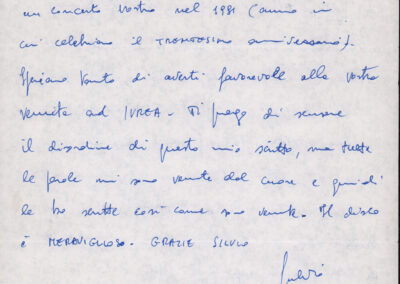 un concerto vostro nel 1981 (anno in
cui celebriamo il TRENTESIMO anniversario).
Speriamo tanto di averti favorevole alla vostra
venuta ad IVREA. Ti prego di scusare
il disordine di questo mio scritto, ma tutte
le parole mi sono venute dal cuore e quindi
le ho scritte così come sono venute. Il disco
è MERAVIGLIOSO. GRAZIE SILVIO